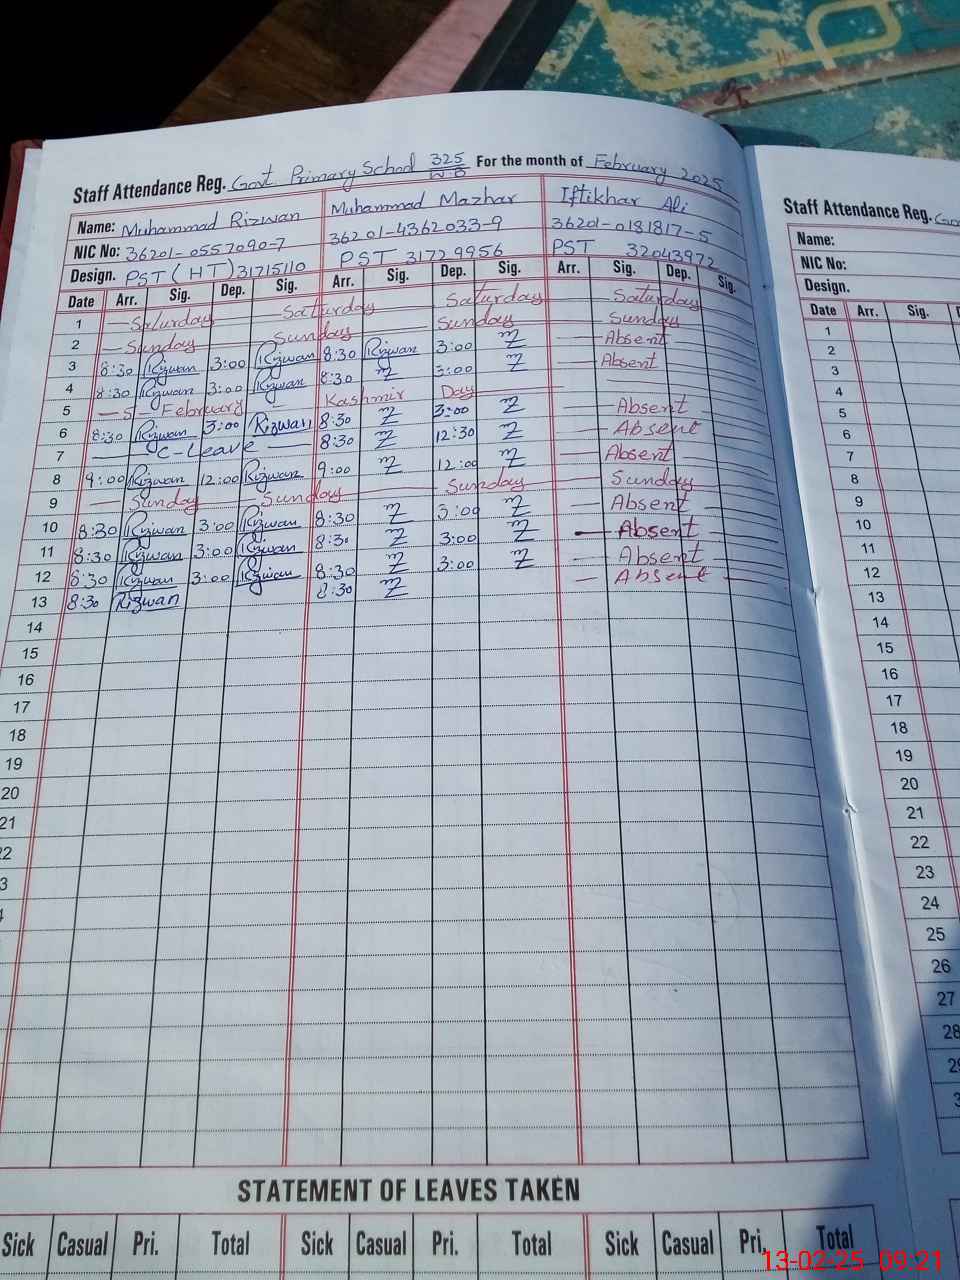 Staff Attendance Reg. Govt. Primary School 325/W.B For the month of February 2025
Name: Muhammad Rizwan Muhammad Mazhar Iftikhar Ali
NIC No: 36201-0557090-7 36201-4362033-9 36201-0181817-5
Design. PST (HT) 31715110 PST 31729956 PST 32043972
Date Arr. Sig. Dep. Sig. Arr. Sig. Dep. Sig. Arr. Sig. Dep. Sig.
1 Saturday Saturday Saturday Saturday
2 Sunday Sunday Sunday Sunday
3 8:30 Rizwan 3:00 Rizwan 8:30 Rizwan 3:00 Absent
4 8:30 Rizwan 3:00 Rizwan 8:30 3:00 Absent
5 5 - February - Kashmir Day
6 8:30 Rizwan 3:00 Rizwan 8:30 3:00 Absent
7 C-Leave 8:30 12:30 Absent
8 9:00 Rizwan 12:00 Rizwan 9:00 12:00 Absent
9 Sunday Sunday Sunday Sunday
10 8:30 Rizwan 3:00 Rizwan 8:30 3:00 Absent
11 8:30 Rizwan 3:00 Rizwan 8:30 3:00 Absent
12 8:30 Rizwan 3:00 Rizwan 8:30 3:00 Absent
13 8:30 Rizwan 8:30 Absent
14
15
16
17
18
19
20
21
STATEMENT OF LEAVES TAKEN
Sick Casual Pri. Total Sick Casual Pri. Total Sick Casual Pri. Total
Staff Attendance Reg.
Name:
NIC No:
Design.
Date Arr. Sig.
1
2
3
4
5
6
7
8
9
10
11
12
13
14
15
16
17
18
19
20
21
22
23
24
25
26
27
28
13-02-25 09:21